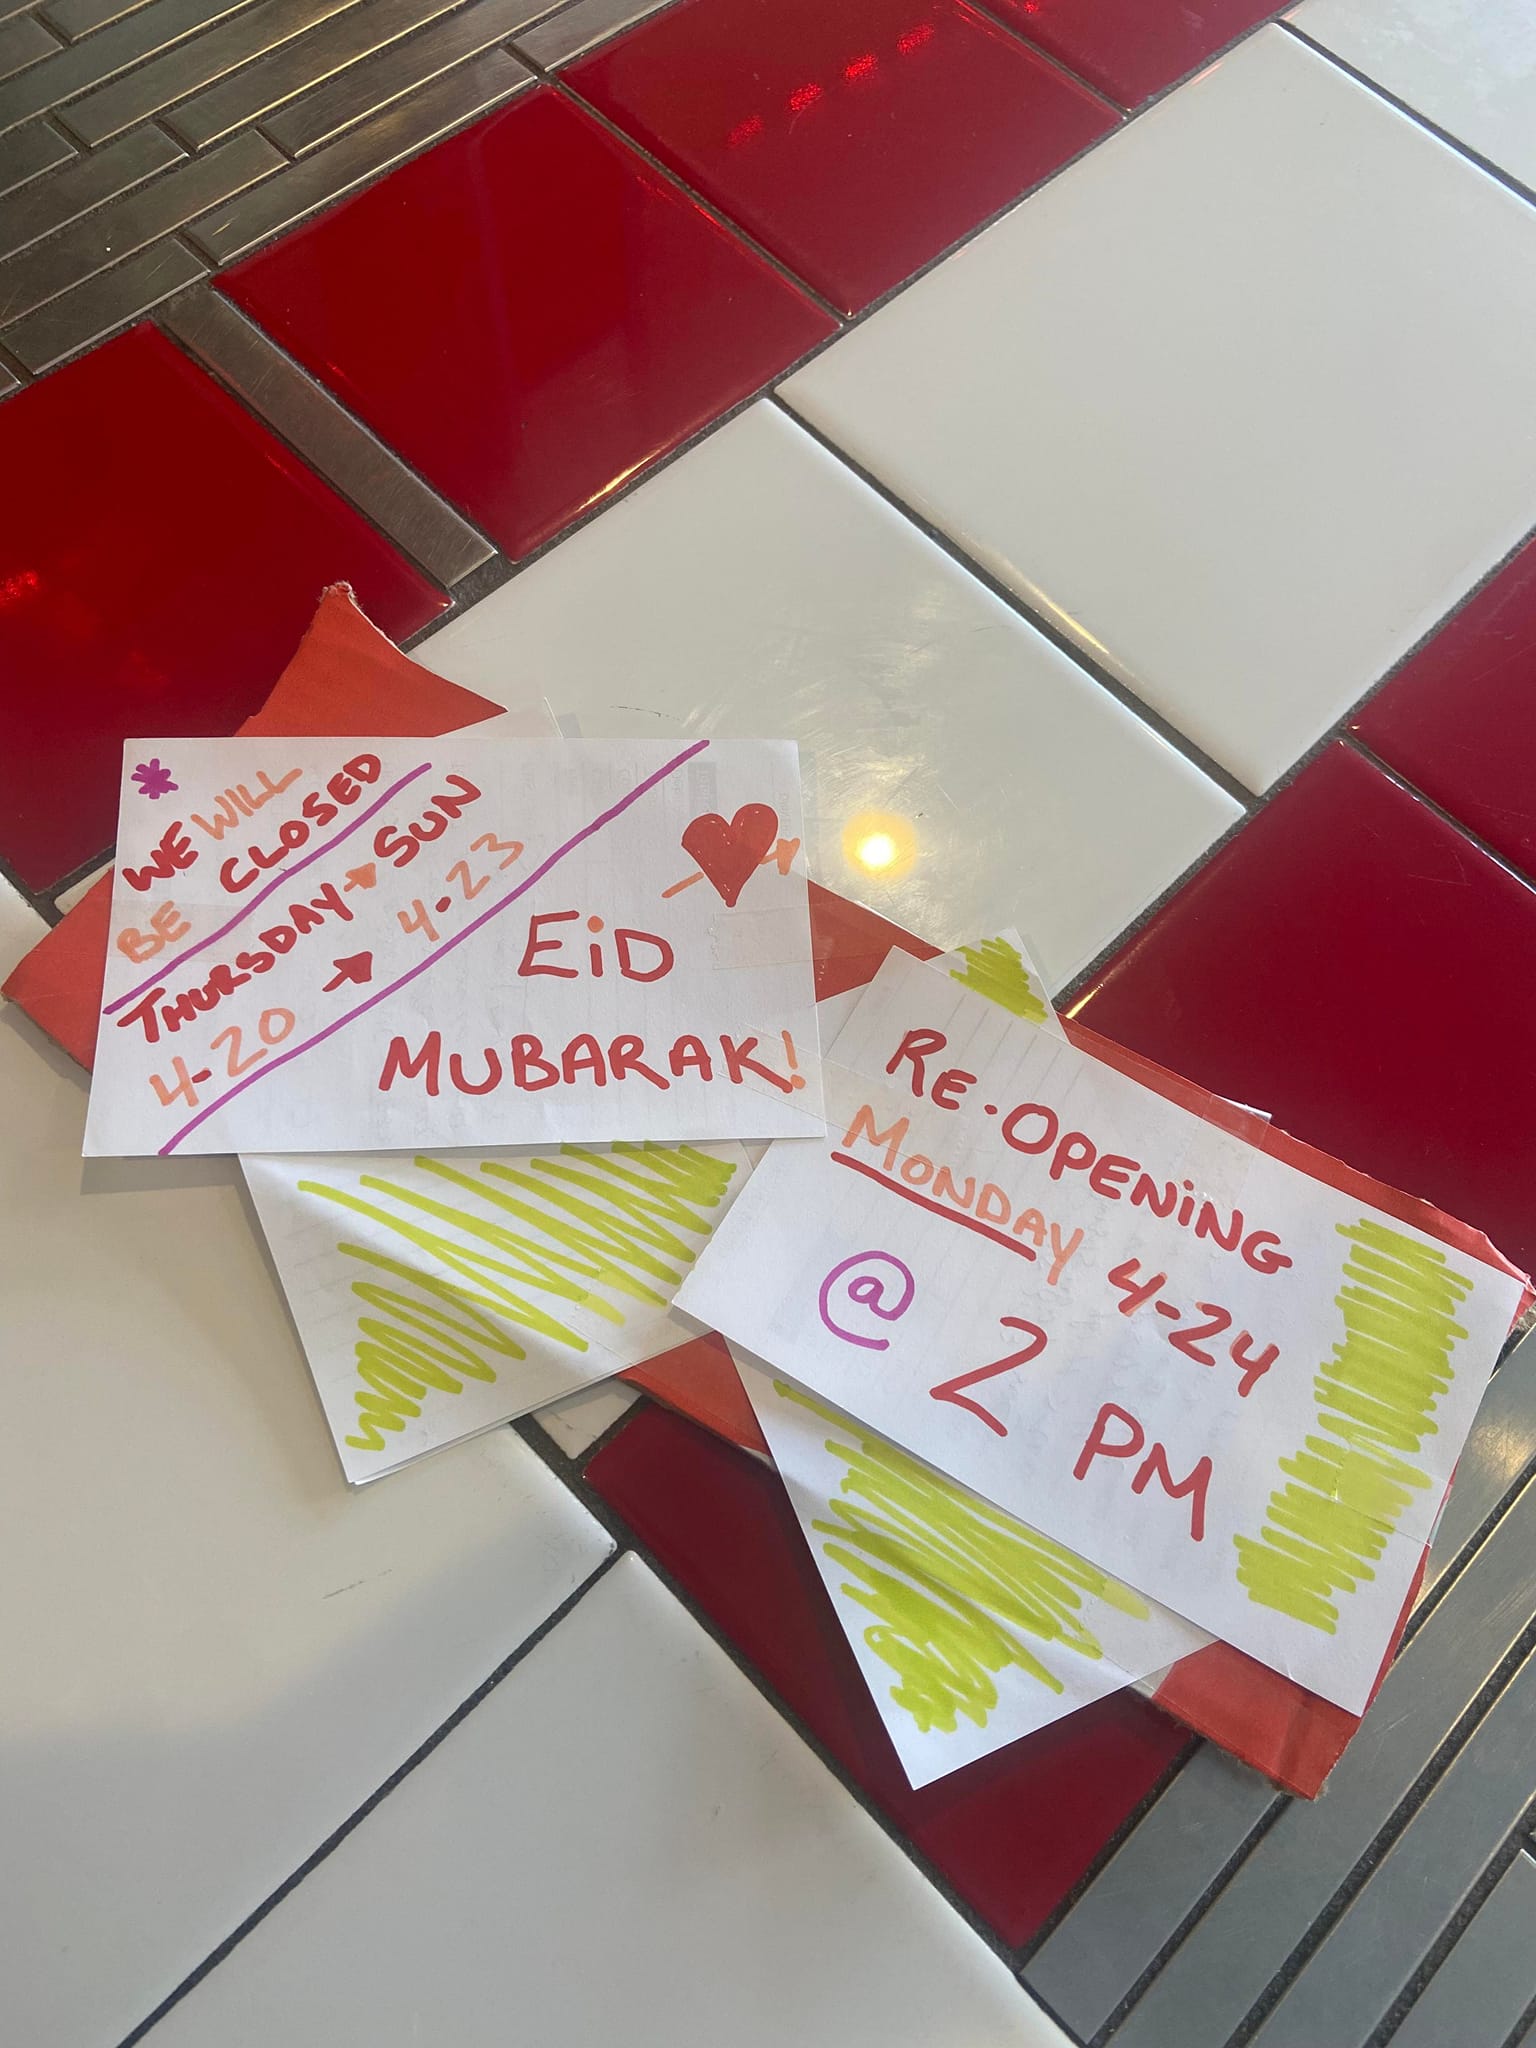 * WE WILL
BE CLOSED
THURSDAY → SUN
4-20 → 4-23
EiD
MUBARAK!
RE-OPENiNG
MONDAY 4-24
@ 2 PM